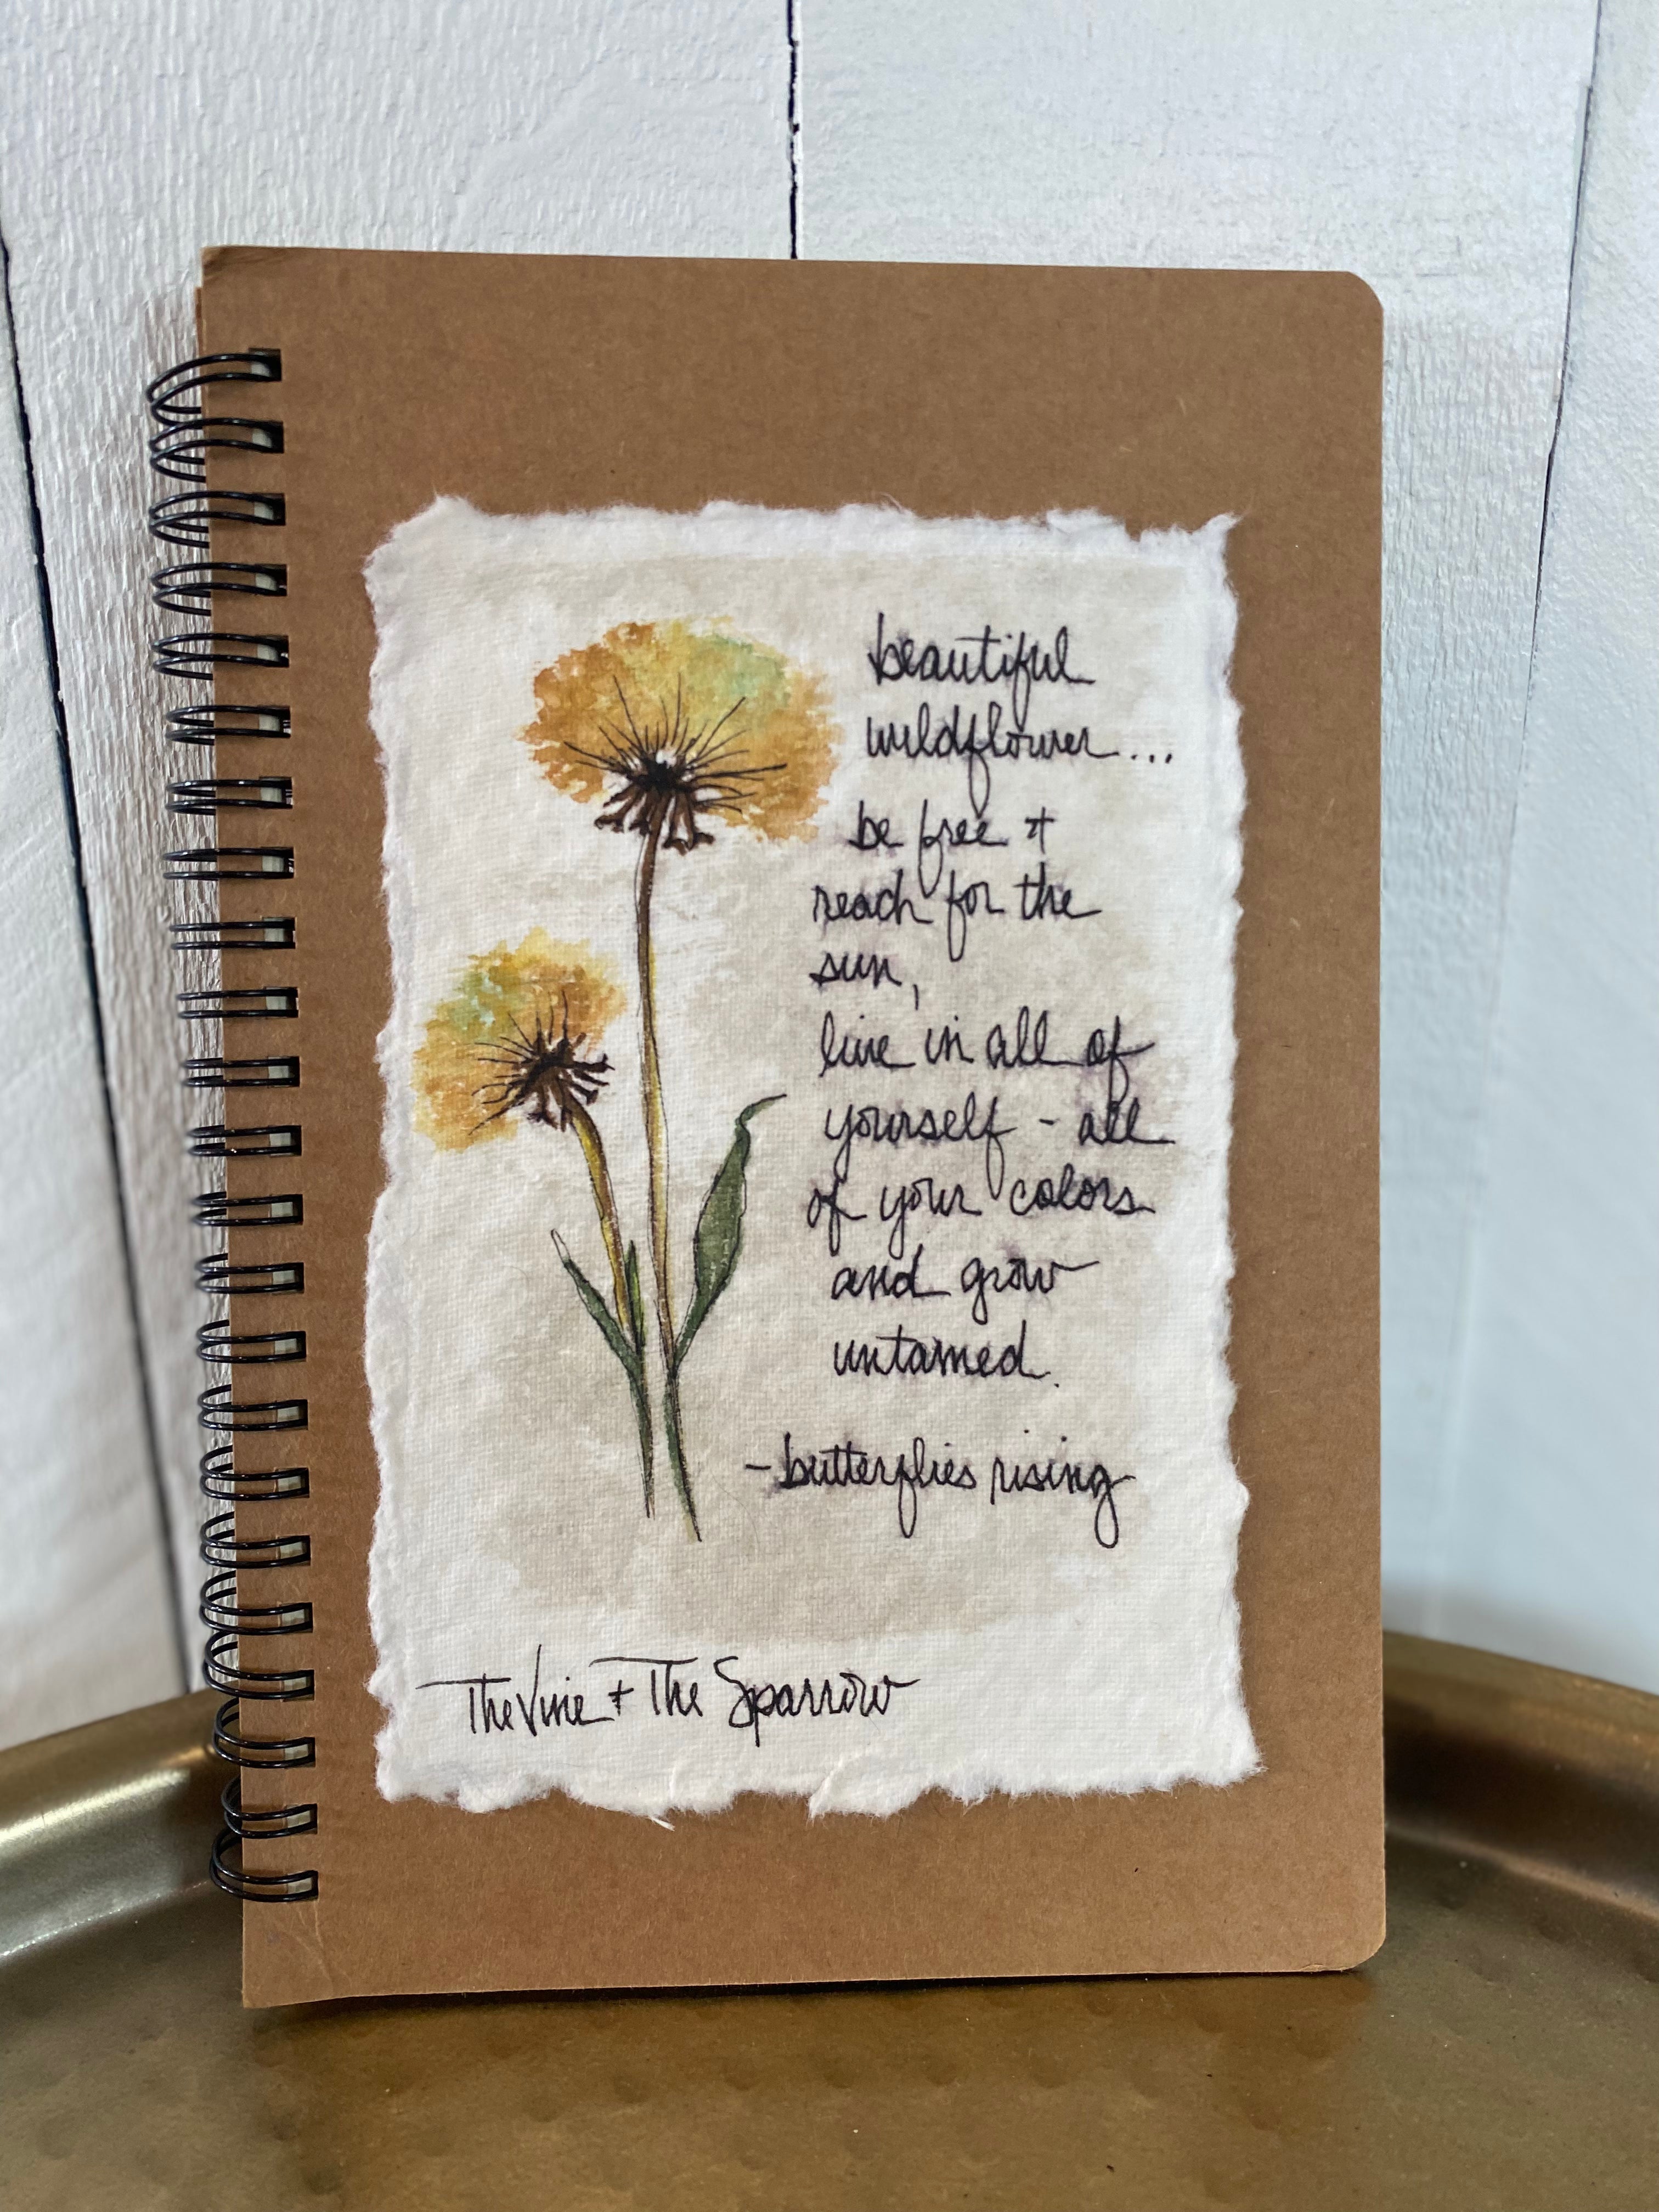 beautiful
wildflower...
be free +
reach for the
sun,
live in all of
yourself - all
of your colors
and grow
untamed.
- butterflies rising
The Vine + The Sparrow